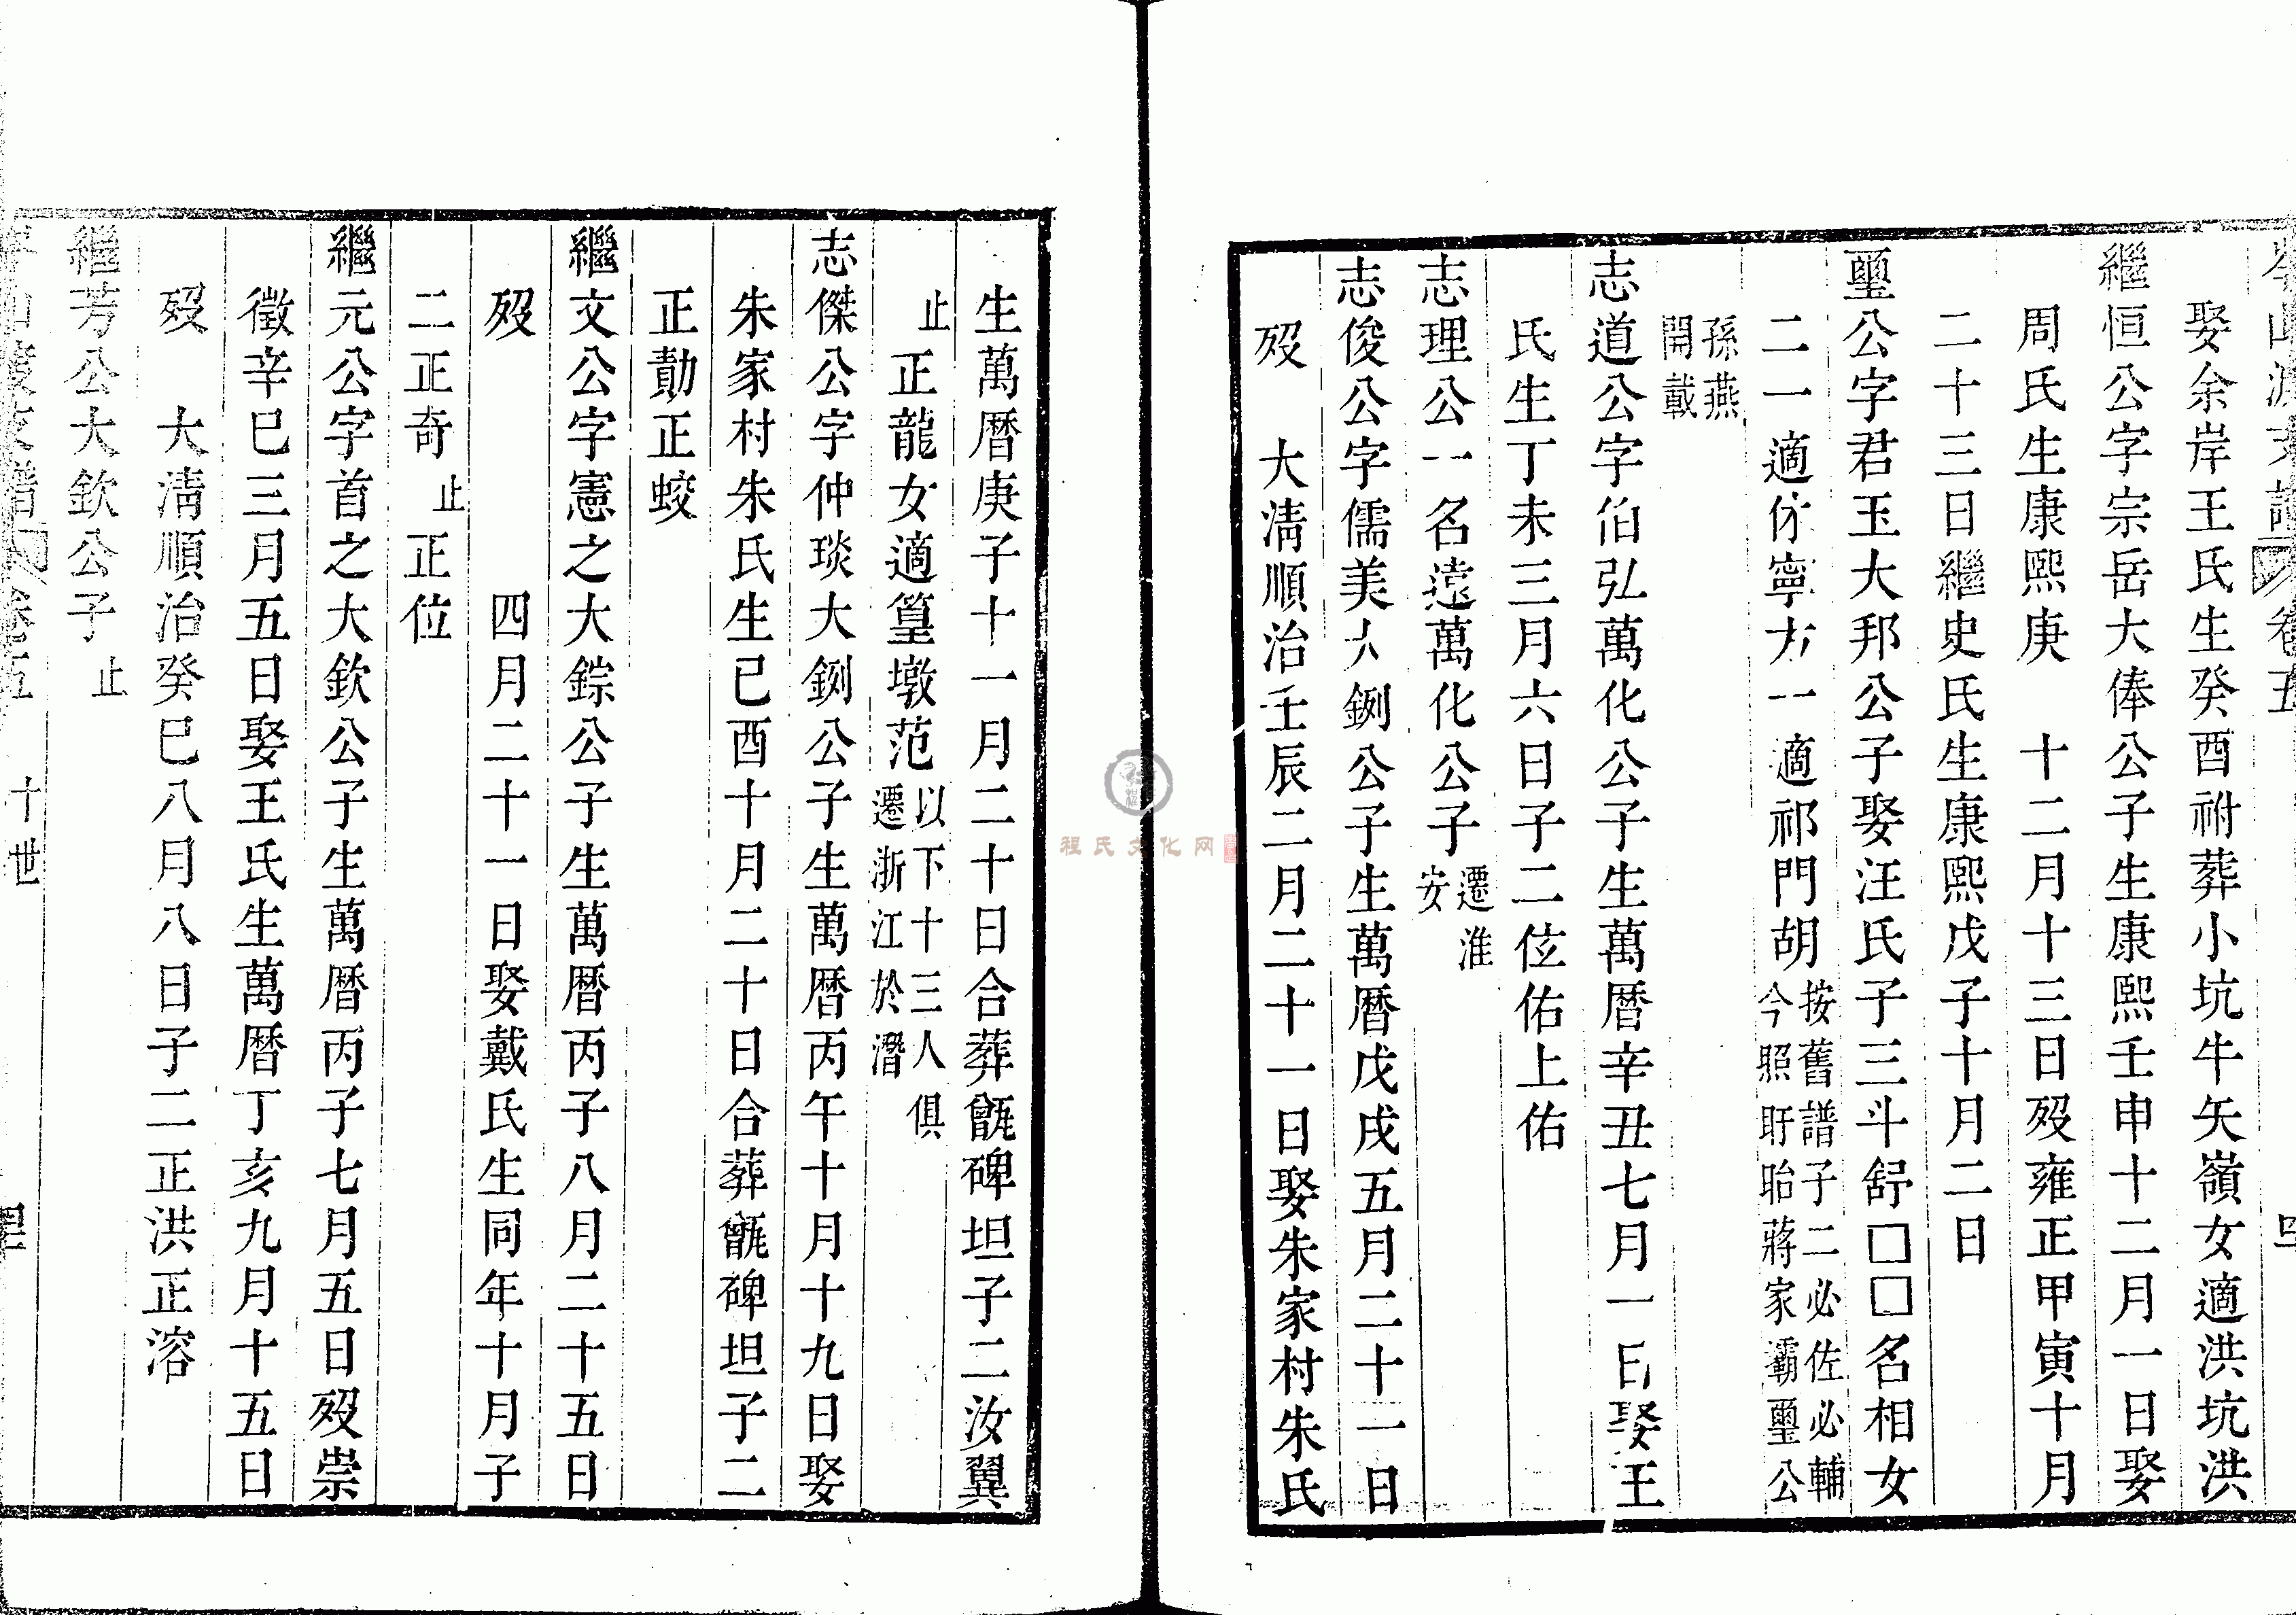 卷五
娶余岸王氏生癸酉祔葬小坑牛矢嶺女適洪坑洪
繼恒公字宗岳大俸公子生康熙壬申十二月一日娶
周氏生康熙庚 十二月十三日歿雍正甲寅十月
二十三日繼史氏生康熙戊子十月二日
璽公字君玉大邦公子娶汪氏子三斗舒□□名相女
二一適休寧方一適祁門胡按舊譜子二必佐必輔
今照盱眙蔣家灞璽公
孫燕
開載
志道公字伯弘萬化公子生萬曆辛丑七月一日娶王
氏生丁未三月六日子二伭佑上佑
志理公一名遠萬化公子遷淮
安
志俊公字儒美大鉶公子生萬曆戊戌五月二十一日
歿 大清順治壬辰二月二十一日娶朱家村朱氏
生萬曆庚子十一月二十日合葬甑碑坦子二汝翼
止正龍女適篁墩范以下十三人俱
遷浙江於潛
志傑公字仲琰大鉶公子生萬曆丙午十月十九日娶
朱家村朱氏生己酉十月二十日合葬甑碑坦子二
正勣正蛟
繼文公字憲之大錝公子生萬曆丙子八月二十五日
歿 四月二十一日娶戴氏生同年十月子
二正奇止正位
繼元公字首之大欽公子生萬曆丙子七月五日歿崇
徵辛巳三月五日娶王氏生萬曆丁亥九月十五日
歿 大清順治癸巳八月八日子二正洪正溶
繼芳公大欽公子止
十世
程氏文化网